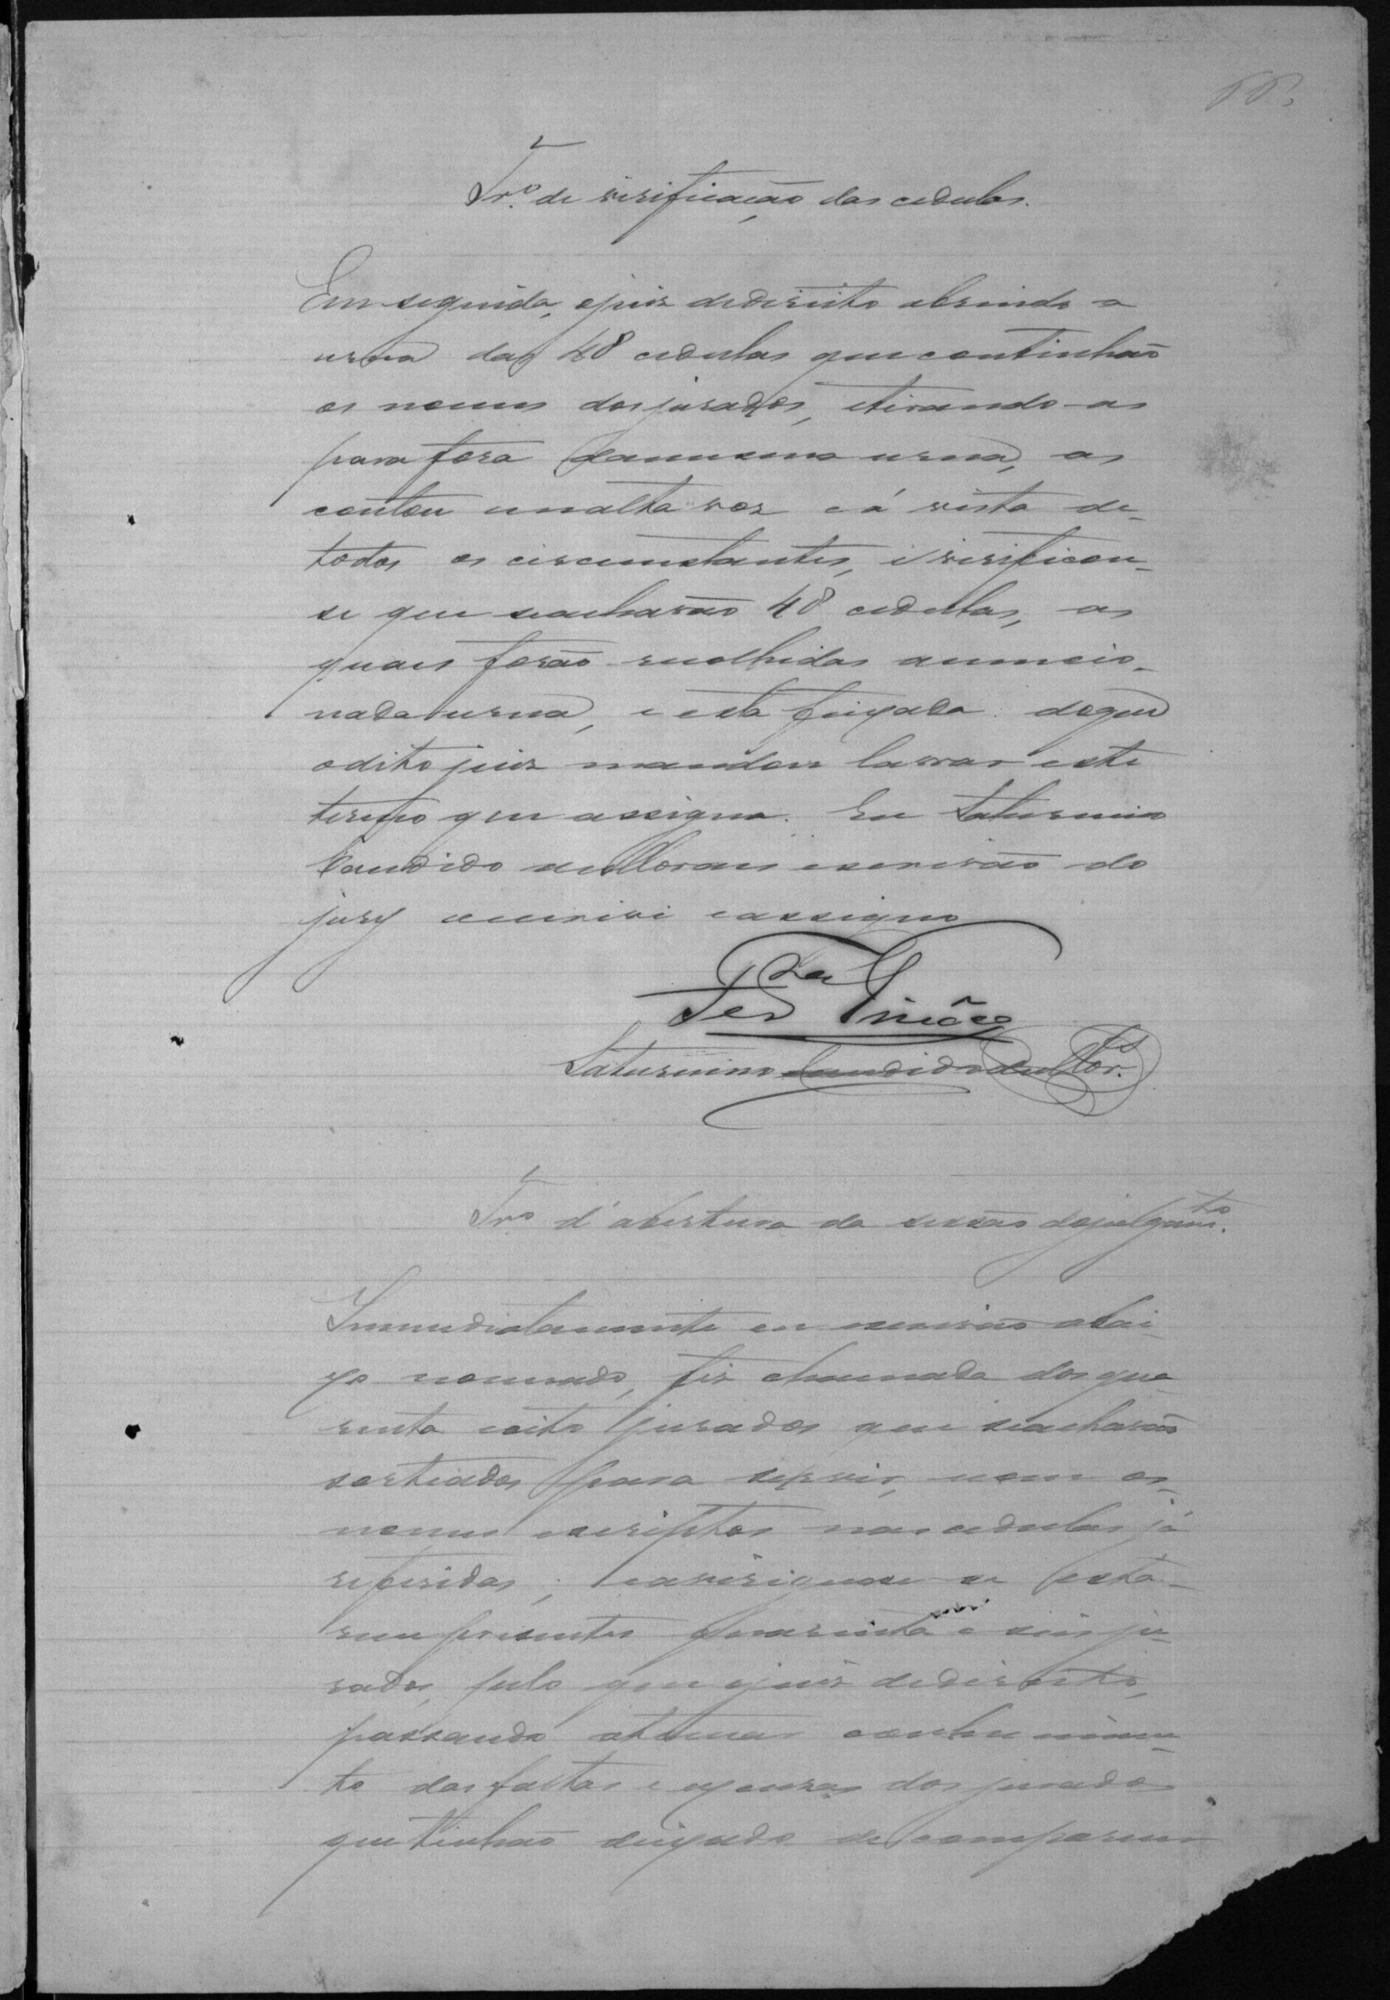 66.
Tr.º de verificação das cedulas.
Em seguida, o juiz de direito abrindo a
urna das 48 cedulas que continhão
os nomes dos jurados, e tirando-as
para fora da mesma urna, as
contou em alta voz e á vista de
todos os circumstantes, e verificou-
se que se acharão 48 cedulas, as
quaes forão recolhidas a mencio-
nada urna, e esta feixada: do que
o dito juiz mandou lavrar este
termo que assigna. Eu Saturnino
Candido de Moraes escrivão do
jury escrevi e assigno
Saturnino Candido de Mor.
Tr.º d'abertura da sessão do julgamto.
Immediatamente eu escrivão abai-
xo nomeado, fiz chamada dos qua-
renta e oito jurados que se acharão
sorteados para servir, com os
nomes escriptos nas cedulas já
referidas; e averiguou-se esta-
rem presentes quarenta e seis ju-
rados, pelo que o juiz de direito,
passando a tomar conhecimen-
to das faltas e escusas dos jurados
que tinhão deixado de comparecer